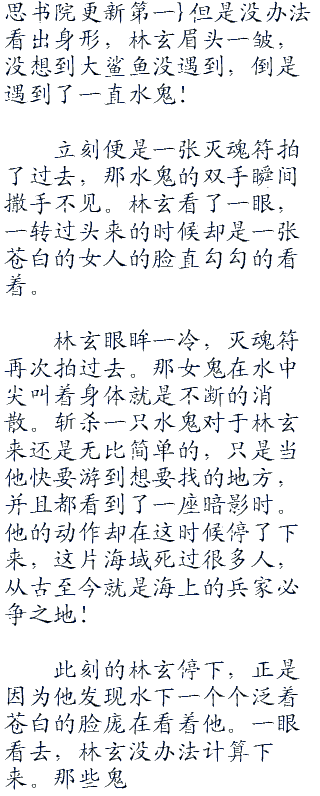 思书院更新第一}但是没办法
看出身形，林玄眉头一皱，
没想到大鲨鱼没遇到，倒是
遇到了一直水鬼！
立刻便是一张灭魂符拍
了过去，那水鬼的双手瞬间
撒手不见。林玄看了一眼，
一转过头来的时候却是一张
苍白的女人的脸直勾勾的看
着。
林玄眼眸一冷，灭魂符
再次拍过去。那女鬼在水中
尖叫着身体就是不断的消
散。斩杀一只水鬼对于林玄
来还是无比简单的，只是当
他快要游到想要找的地方，
并且都看到了一座暗影时。
他的动作却在这时候停了下
来，这片海域死过很多人，
从古至今就是海上的兵家必
争之地！
此刻的林玄停下，正是
因为他发现水下一个个泛着
苍白的脸庞在看着他。一眼
看去，林玄没办法计算下
来。那些鬼